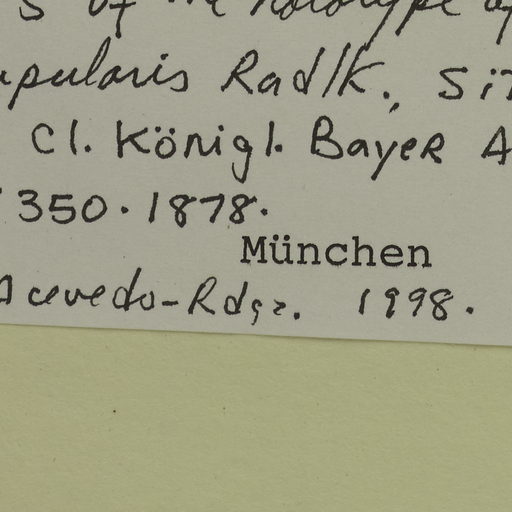 s of the holotype of
pularis Radlk., Si
Cl. Königl. Bayer A
350. 1878.
München
Acevedo-Rdgz. 1998.